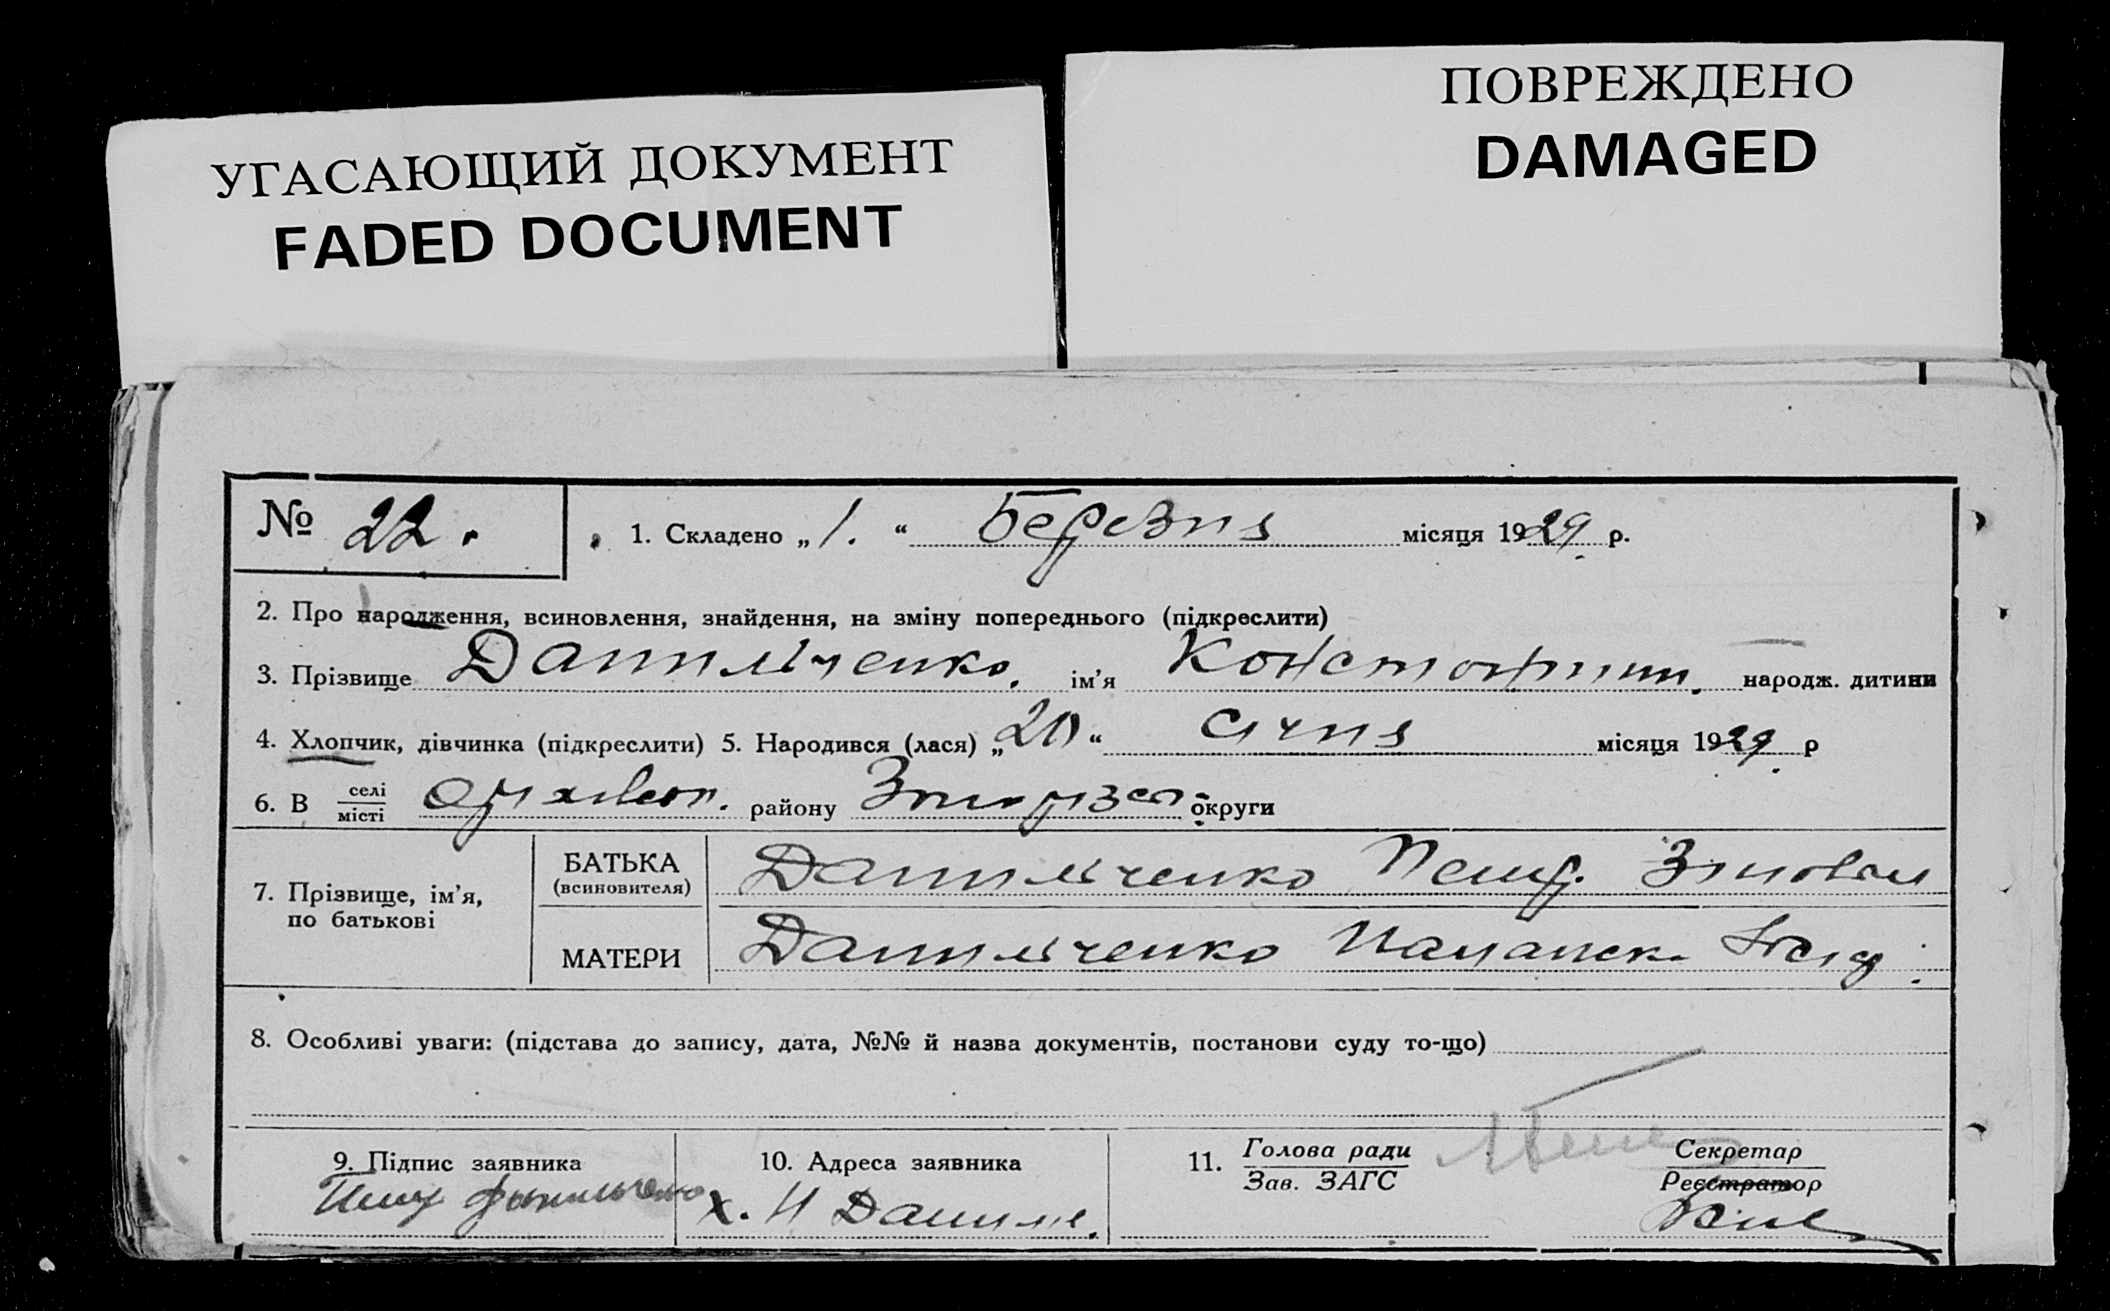 УГАСАЮЩИЙ ДОКУМЕНТ
FADED DOCUMENT
ПОВРЕЖДЕНО
DAMAGED
№ 22.
1. Складено „1.“ Березня місяця 1929 р.
2. Про народження, всиновлення, знайдення, на зміну попереднього (підкреслити)
3. Прізвище Данильченко. ім’я Константин. народж. дитини
4. Хлопчик, дівчинка (підкреслити) 5. Народився (лася) „20“ січня місяця 1929 р
6. В селі місті району округи
7. Прізвище, ім’я, по батькові
БАТЬКА (всиновителя) Данильченко Петр.
МАТЕРИ Данильченко
8. Особливі уваги: (підстава до запису, дата, №№ й назва документів, постанови суду то-що)
9. Підпис заявника
10. Адреса заявника
х. Н
11. Голова ради Зав. ЗАГС
Секретар Реєстратор